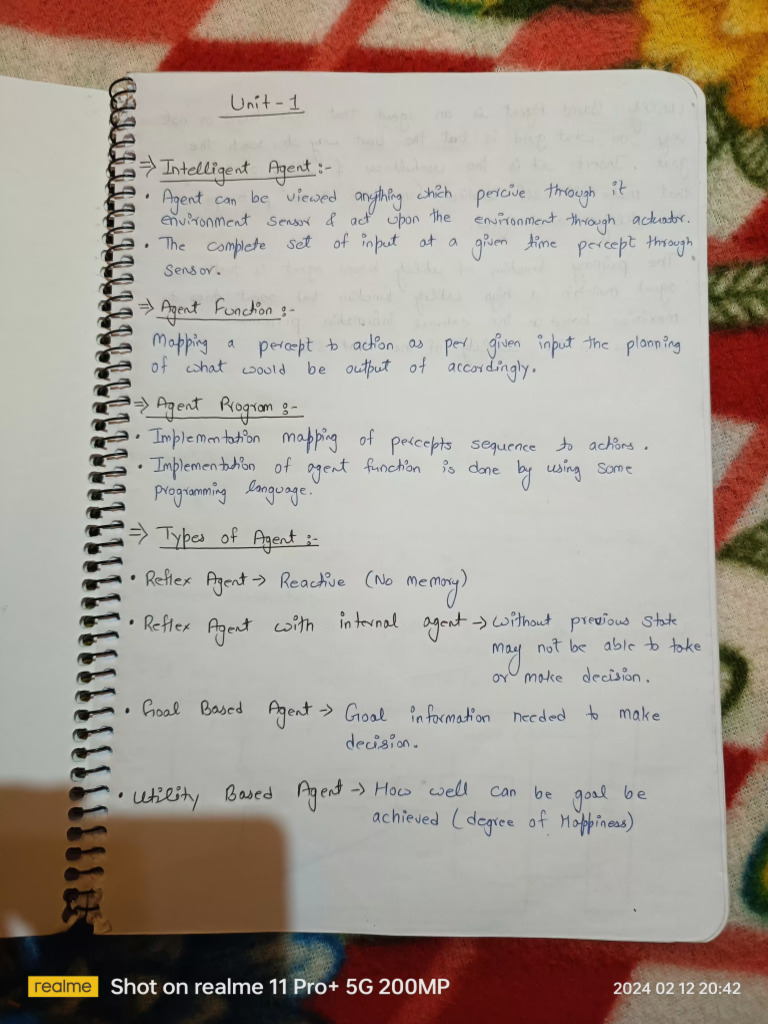 Unit-1
⇒ Intelligent Agent :-
• Agent can be viewed anything which percive through it
environment sensor & act upon the environment through actuator.
• The complete set of input at a given time percept through
sensor.
⇒ Agent Function :-
Mapping a percept to action as per given input the planning
of what would be output of accordingly.
⇒ Agent Program :-
• Implementation mapping of percepts sequence to actions.
• Implementation of agent function is done by using some
programming language.
⇒ Types of Agent :-
• Reflex Agent → Reactive (No memory)
• Reflex Agent with internal agent → without previous state
may not be able to take
or make decision.
• Goal Based Agent → Goal information needed to make
decision.
• Utility Based Agent → How well can be goal be
achieved (degree of Happiness)
realme Shot on realme 11 Pro+ 5G 200MP
2024 02 12 20:42